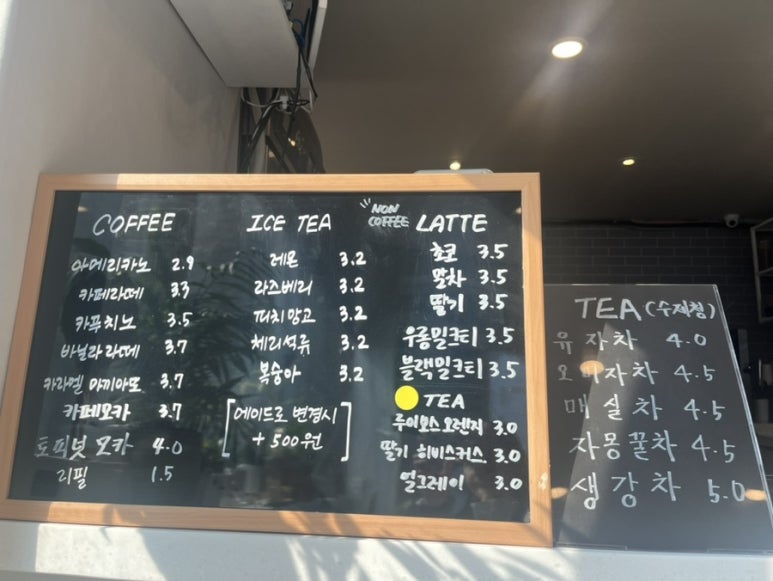 COFFEE
아메리카노 2.9
카페라떼 3.3
카푸치노 3.5
바닐라 라떼 3.7
카라멜 마끼아또 3.7
카페모카 3.7
토피넛 모카 4.0
리필 1.5
ICE TEA
레몬 3.2
라즈베리 3.2
피치망고 3.2
체리석류 3.2
복숭아 3.2
[에이드로 변경시
+500원]
NON
COFFEE LATTE
초코 3.5
말차 3.5
딸기 3.5
우롱밀크티 3.5
블랙밀크티 3.5
TEA
루이보스 오렌지 3.0
딸기 히비스커스 3.0
얼그레이 3.0
TEA (수제청)
유자차 4.0
오미자차 4.5
매실차 4.5
자몽꿀차 4.5
생강차 5.0